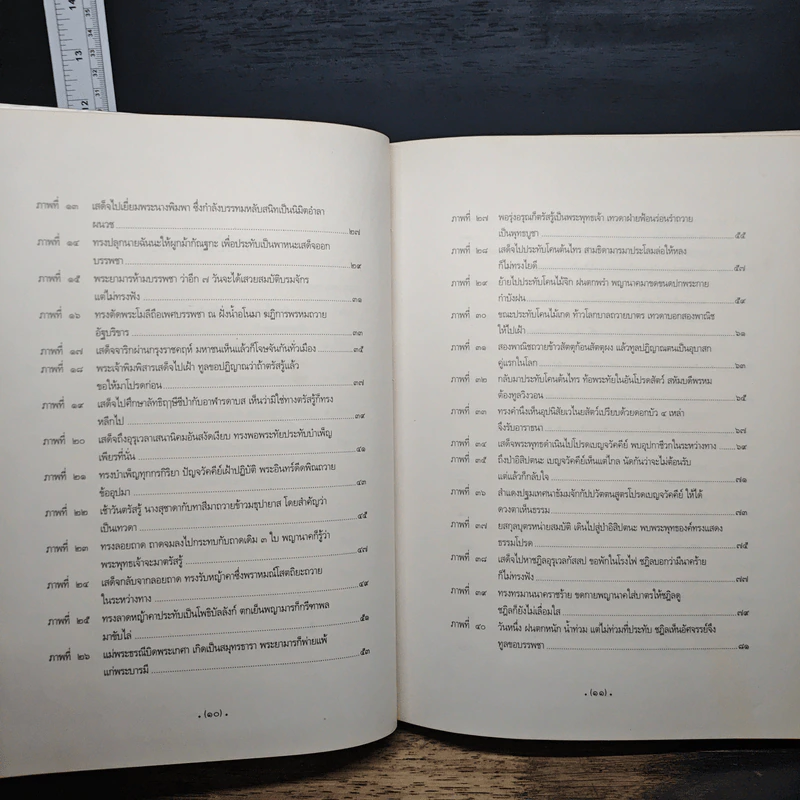 14
13
12
35
34
33
32
31
ภาพที่ ๑๓ เสด็จไปเยี่ยมพระนางพิมพา ซึ่งกำลังบรรทมหลับสนิทเป็นนิมิตอำลา
ผนวช ๒๗
ภาพที่ ๑๔ ทรงปลุกนายฉันนะให้ผูกม้ากัณฐกะ เพื่อประทับเป็นพาหนะเสด็จออก
บรรพชา ๒๙
ภาพที่ ๑๕ พระยามารห้ามบรรพชา ว่าอีก ๗ วันจะได้เสวยสมบัติบรมจักร
แต่ไม่ทรงฟัง ๓๑
ภาพที่ ๑๖ ทรงตัดพระโมลีถือเพศบรรพชา ณ ฝั่งน้ำอโนมา ฆฏิการพรหมถวาย
อัฐบริขาร ๓๓
ภาพที่ ๑๗ เสด็จจาริกผ่านกรุงราชคฤห์ มหาชนเห็นแล้วก็โจษจันกันทั่วเมือง ๓๕
ภาพที่ ๑๘ พระเจ้าพิมพิสารเสด็จไปเฝ้า ทูลขอปฏิญาณว่าถ้าตรัสรู้แล้ว
ขอให้มาโปรดก่อน ๓๗
ภาพที่ ๑๙ เสด็จไปศึกษาลัทธิฤๅษีชีป่ากับอาฬารดาบส เห็นว่ามิใช่ทางตรัสรู้ก็ทรง
หลีกไป ๓๙
ภาพที่ ๒๐ เสด็จถึงอุรุเวลาเสนานิคมอันสงัดเงียบ ทรงพอพระทัยประทับบำเพ็ญ
เพียรที่นั้น ๔๑
ภาพที่ ๒๑ ทรงบำเพ็ญทุกกรกิริยา ปัญจวัคคีย์เฝ้าปฏิบัติ พระอินทร์ดีดพิณถวาย
ข้ออุปมา ๔๓
ภาพที่ ๒๒ เช้าวันตรัสรู้ นางสุชาดากับทาสีมาถวายข้าวมธุปายาส โดยสำคัญว่า
เป็นเทวดา ๔๕
ภาพที่ ๒๓ ทรงลอยถาด ถาดจมลงไปกระทบกับถาดเดิม ๓ ใบ พญานาคก็รู้ว่า
พระพุทธเจ้าจะมาตรัสรู้ ๔๗
ภาพที่ ๒๔ เสด็จกลับจากลอยถาด ทรงรับหญ้าคาซึ่งพราหมณ์โสตถิยะถวาย
ในระหว่างทาง ๔๙
ภาพที่ ๒๕ ทรงลาดหญ้าคาประทับเป็นโพธิบัลลังก์ ตกเย็นพญามารก็กรีฑาพล
มาขับไล่ ๕๑
ภาพที่ ๒๖ แม่พระธรณีบิดพระเกศา เกิดเป็นสมุทรธารา พระยามารก็พ่ายแพ้
แก่พระบารมี ๕๓
• (๑๐) •
ภาพที่ ๒๗ พอรุ่งอรุณก็ตรัสรู้เป็นพระพุทธเจ้า เทวดาฝ่ายฟ้อนร่อนรำถวาย
เป็นพุทธบูชา ๕๕
ภาพที่ ๒๘ เสด็จไปประทับโคนต้นไทร สามธิดามารมาประโลมล่อให้หลง
ก็ไม่ทรงไยดี ๕๗
ภาพที่ ๒๙ ย้ายไปประทับโคนไม้จิก ฝนตกพรำ พญานาคมาขดขนดปกพระกาย
กำบังฝน ๕๙
ภาพที่ ๓๐ ขณะประทับโคนไม้เกด ท้าวโลกบาลถวายบาตร เทวดาบอกสองพาณิช
ให้ไปเฝ้า ๖๑
ภาพที่ ๓๑ สองพาณิชถวายข้าวสัตตุก้อนสัตตุผง แล้วทูลปฏิญาณตนเป็นอุบาสก
คู่แรกในโลก ๖๓
ภาพที่ ๓๒ กลับมาประทับโคนต้นไทร ท้อพระทัยในอันโปรดสัตว์ สหัมบดีพรหม
ต้องทูลวิงวอน ๖๕
ภาพที่ ๓๓ ทรงคำนึงเห็นอุปนิสัยเวไนยสัตว์เปรียบด้วยดอกบัว ๔ เหล่า
จึงรับอาราธนา ๖๗
ภาพที่ ๓๔ เสด็จพระพุทธดำเนินไปโปรดเบญจวัคคีย์ พบอุปกาชีวกในระหว่างทาง ๖๙
ภาพที่ ๓๕ ถึงป่าอิสิปตนะ เบญจวัคคีย์เห็นแต่ไกล นัดกันว่าจะไม่ต้อนรับ
แต่แล้วก็กลับใจ ๗๑
ภาพที่ ๓๖ สำแดงปฐมเทศนาธัมมจักกัปปวัตตนสูตรโปรดเบญจวัคคีย์ ให้ได้
ดวงตาเห็นธรรม ๗๓
ภาพที่ ๓๗ ยสกุลบุตรหน่ายสมบัติ เดินไปสู่ป่าอิสิปตนะ พบพระพุทธองค์ทรงแสดง
ธรรมโปรด ๗๕
ภาพที่ ๓๘ เสด็จไปหาชฎิลอุรุเวลกัสสป ขอพักในโรงไฟ ชฎิลบอกว่ามีนาคร้าย
ก็ไม่ทรงฟัง ๗๗
ภาพที่ ๓๙ ทรงทรมานนาคราชร้าย ขดกายพญานาคใส่บาตรให้ชฎิลดู
ชฎิลก็ยังไม่เลื่อมใส ๗๙
ภาพที่ ๔๐ วันหนึ่ง ฝนตกหนัก น้ำท่วม แต่ไม่ท่วมที่ประทับ ชฎิลเห็นอัศจรรย์จึง
ทูลขอบรรพชา ๘๑
• (๑๑) •